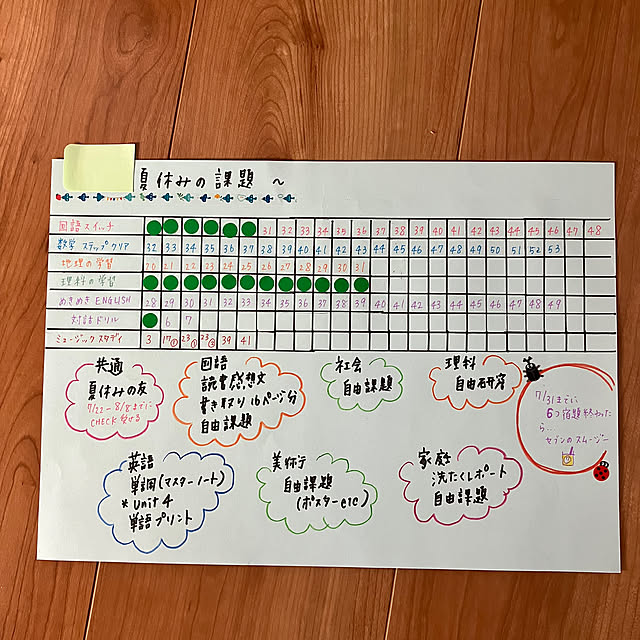 夏休みの課題 ~
国語スイッチ 31 32 33 34 35 36 37 38 39 40 41 42 43 44 45 46 47 48
数学 ステップ クリア 32 33 34 35 36 37 38 39 40 41 42 43 44 45 46 47 48 49 50 51 52 53
地理の学習 20 21 22 23 24 25 26 27 28 29 30 31
理科の学習
めきめき ENGLISH 28 29 30 31 32 33 34 35 36 37 38 39 40 41 42 43 44 45 46 47 48 49
対話ドリル 6 7
ミュージック スタディ 3 17① 23① 23② 39 41
共通
夏休みの友
7/22-8/8までに
CHECK受ける
国語
読書感想文
書き取り 16ページ分
自由課題
社会
自由課題
理科
自由研究
7/31までに
6つ宿題終わった
ら…
セブンのスムージー
英語
単調(マスターノート)
* Unit 4
単語プリント
美術
自由課題
(ポスターetc)
家庭
洗たくレポート
自由課題